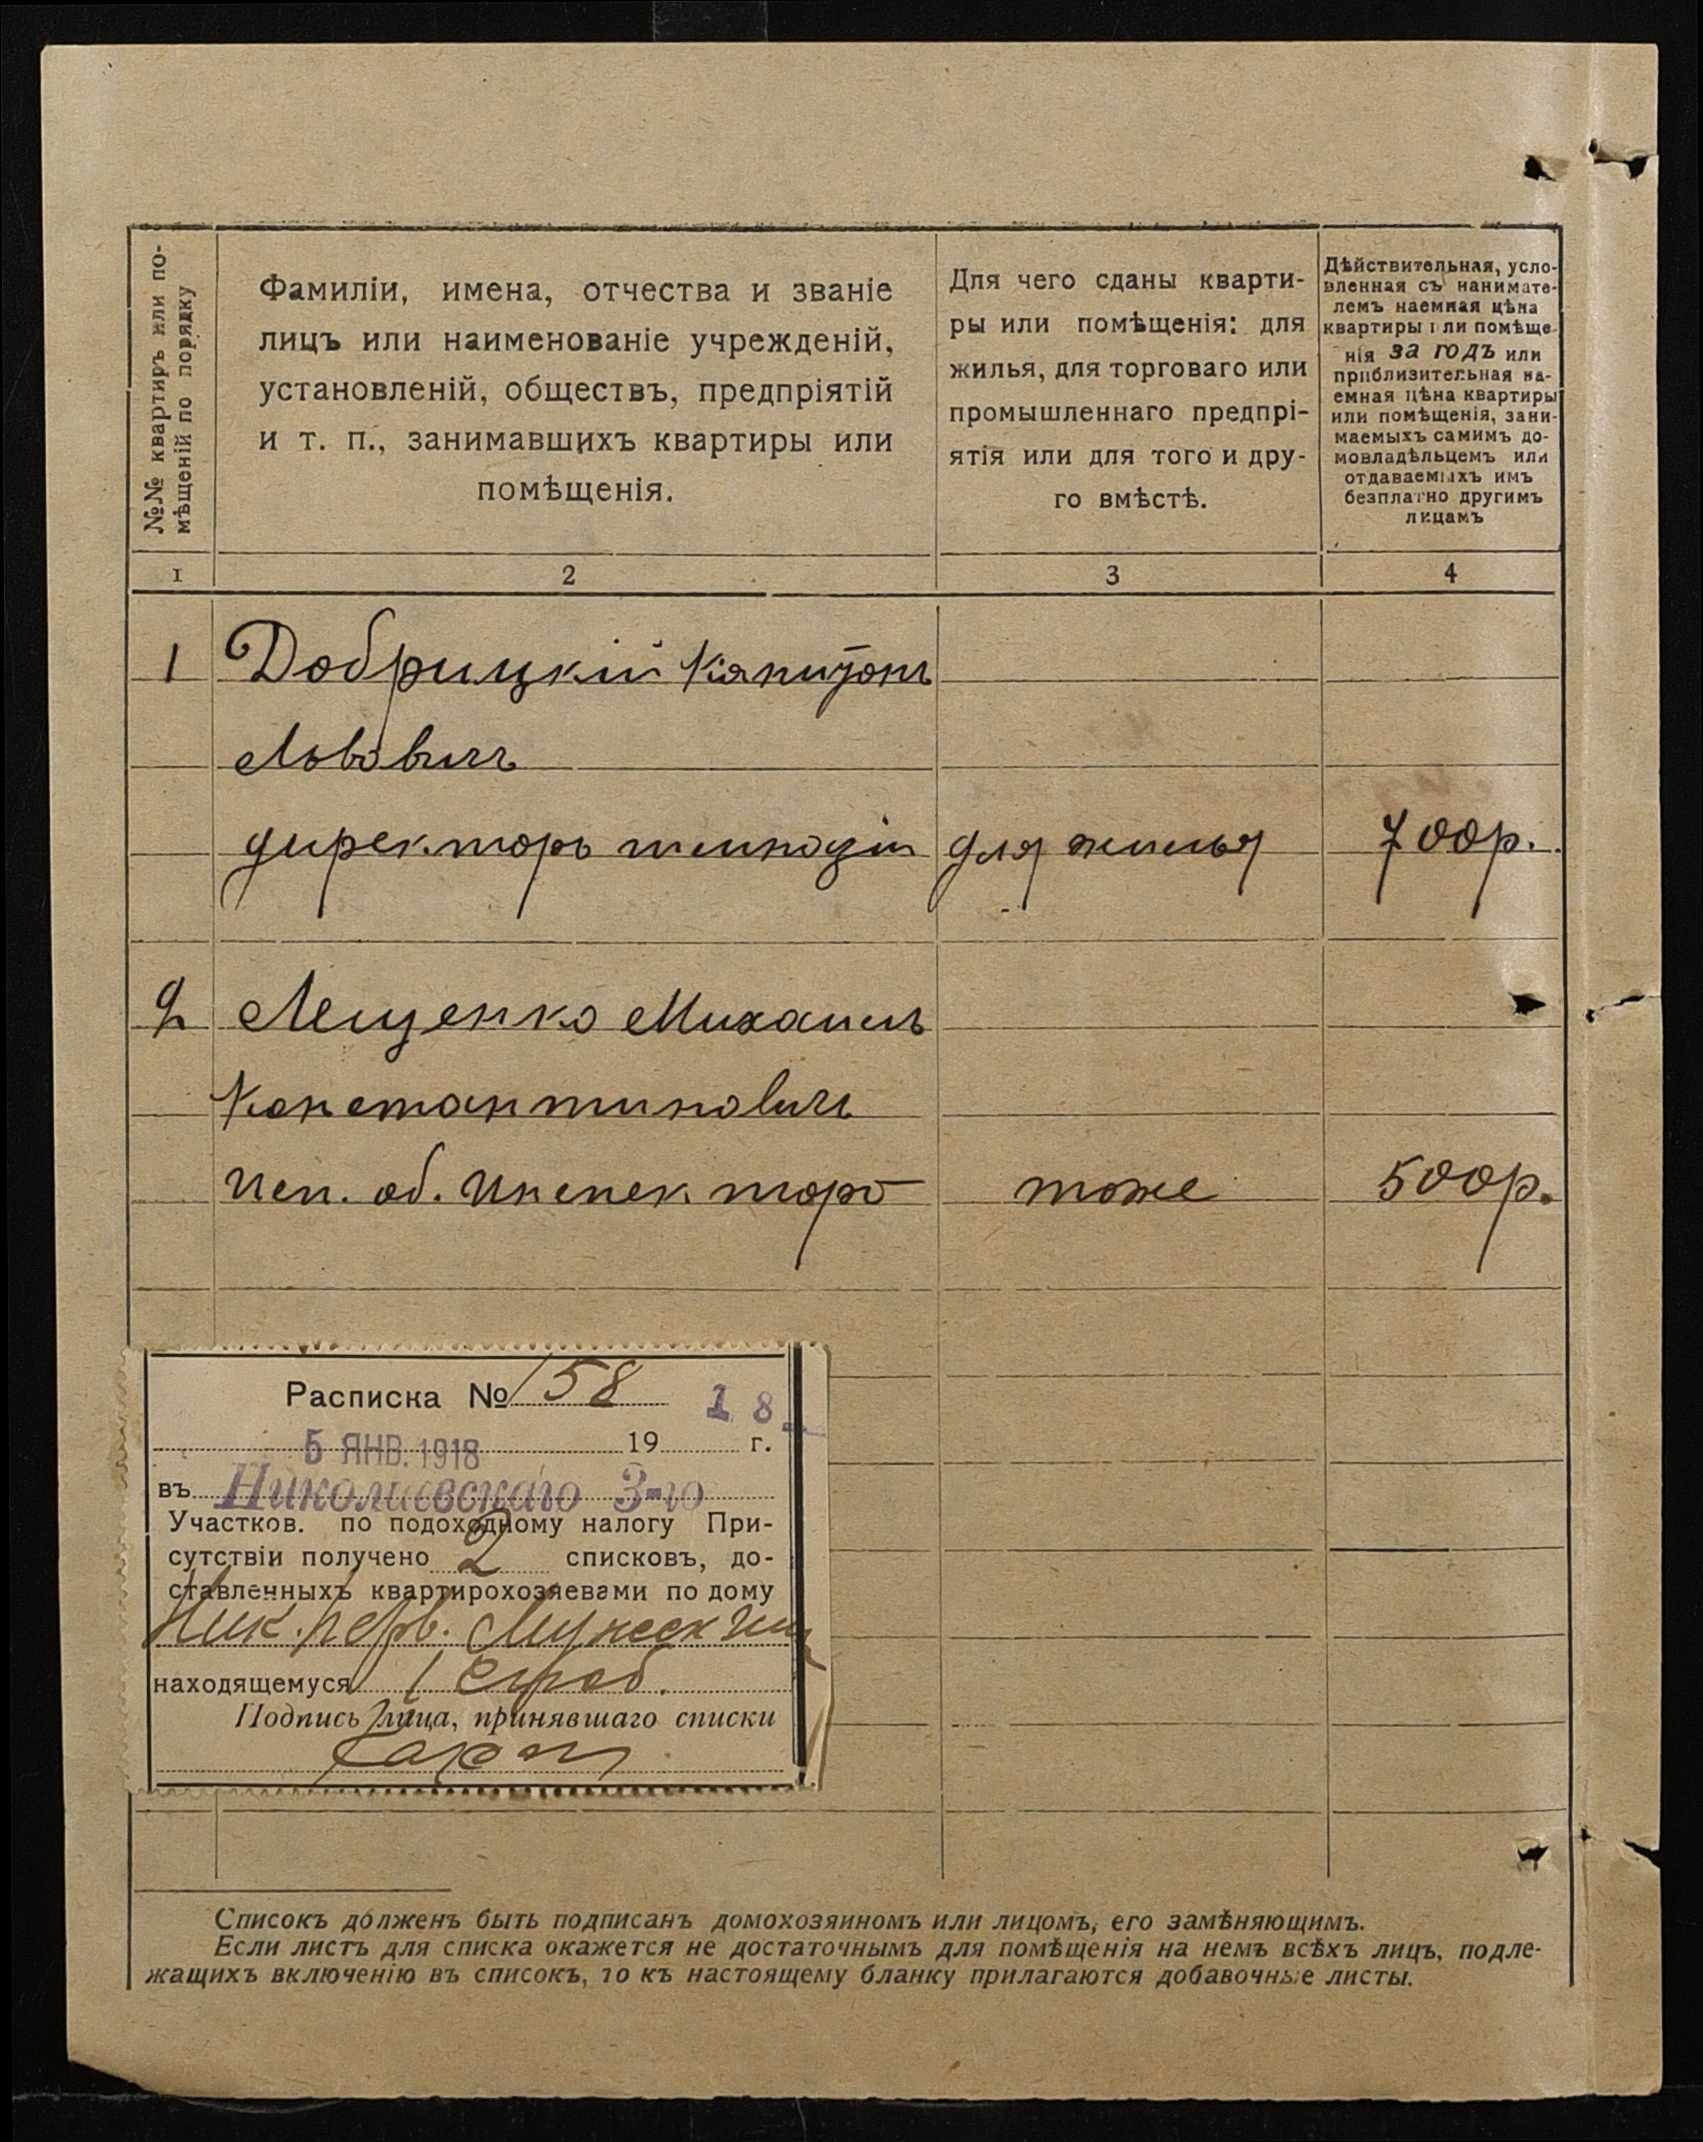 №№ квартиръ или по-
мѣщеній по порядку
Фамиліи, имена, отчества и званіе
лицъ или наименованіе учрежденій,
установленій, обществъ, предпріятій
и т. п., занимавшихъ квартиры или
помѣщенія.
Для чего сданы кварти-
ры или помѣщенія: для
жилья, для торговаго или
промышленнаго предпрі-
ятія или для того и дру-
го вмѣстѣ.
Дѣйствительная, усло-
вленная съ нанимате-
лемъ наемная цѣна
квартиры или помѣще-
нія за годъ или
приблизительная на-
емная цѣна квартиры
или помѣщенія, зани-
маемыхъ самимъ до-
мовладѣльцемъ или
отдаваемыхъ имъ
безплатно другимъ
лицамъ
1 2 3 4
1 Добрицкій Капитонъ
Львовичъ
директоръ гимназіи для жилья 700р.
2 Лещенко Михаилъ
Константиновичъ
Исп. об. Инспектора тоже 500р.
Расписка № 158 18
5 ЯНВ. 1918 19 г.
въ Николаевскаго 3-го
Участков. по подоходному налогу При-
сутствіи получено 2 списковъ, до-
ставленныхъ квартирохозяевами по дому
Ник. перв. Мужск гим
находящемуся 1 Слоб.
Подпись лица, принявшаго списки
Списокъ долженъ быть подписанъ домохозяиномъ или лицомъ, его замѣняющимъ.
Если листъ для списка окажется не достаточнымъ для помѣщенія на немъ всѣхъ лицъ, подле-
жащихъ включенію въ списокъ, то къ настоящему бланку прилагаются добавочные листы.